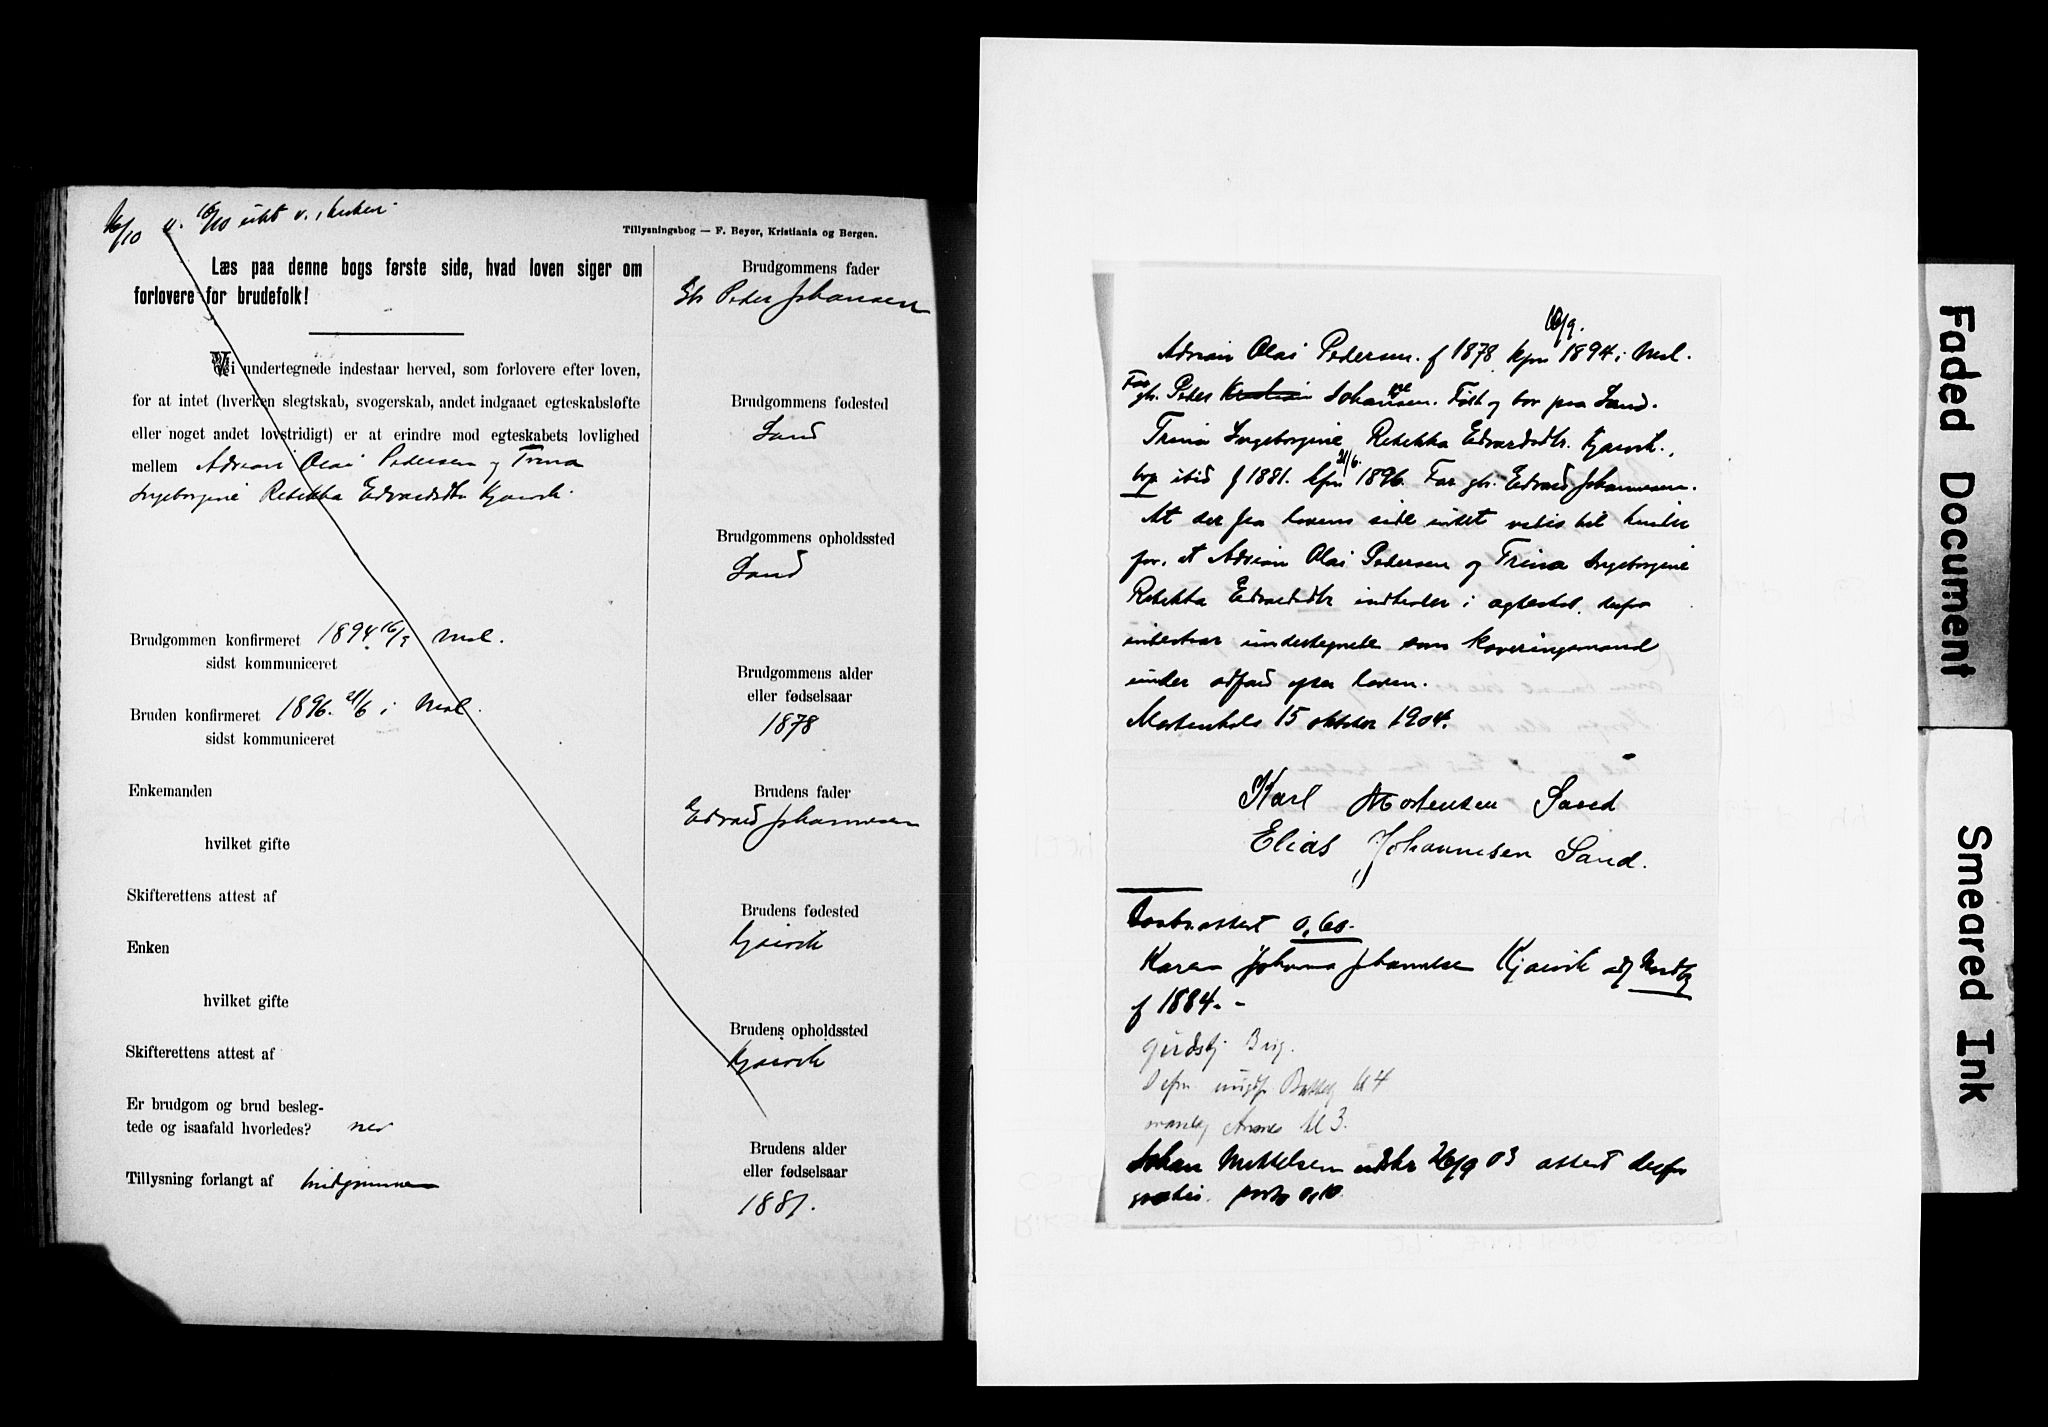 16/10 u. 16/10 utst v.
Tillysningsbog — F. Beyer, Kristiania og Bergen.
Læs paa denne bogs første side, hvad loven siger om
forlovere for brudefolk!
Vi undertegnede indestaar herved, som forlovere efter loven,
for at intet (hverken slegtskab, svogerskab, andet indgaaet egteskabsløfte
eller noget andet lovstridigt) er at erindre mod egteskabets lovlighed
mellem Adrian Olai Pedersen og Trina
Ingeborgine Rebekka Edvardsdtr Kjærvik.
Brudgommen konfirmeret 1894 16/9 Mol.
sidst kommuniceret
Bruden konfirmeret 1896. 21/6 i Mol.
sidst kommuniceret
Enkemanden
hvilket gifte
Skifterettens attest af
Enken
hvilket gifte
Skifterettens attest af
Er brudgom og brud besleg-
tede og isaafald hvorledes? nei
Tillysning forlangt af brudgommen
Brudgommens fader
Gb Peder Johansen
Brudgommens fødested
Sand
Brudgommens opholdssted
Sand
Brudgommens alder
eller fødselsaar
1878
Brudens fader
Edvard Johannesen
Brudens fødested
Kjærvik
Brudens opholdssted
Kjærvik
Brudens alder
eller fødselsaar
1881.
16/9.
Adrian Olai Pedersen. f 1878 kfm 1894 i Mol.
Far gb. Peder Kristian Johansen. Født og bor paa Sand.
Trina Ingeborgine Rebekka Edvardsdtr. Kjærvik.,
bop ibid f 1881. kfm 21/6. 1896. Far gb. Edvard Johannesen.
At der fra lovens side intet vides til hinder
for, at Adrian Olai Pedersen og Trina Ingeborgine
Rebekka Edvardsdtr indtræder i ægteskab, derfor
indestaar undertegnede som kaveringsmænd
under adfærd efter loven.
Mortenhals 15 oktober 1904.
Karl Mortensen Sand
Elias Johannesen Sand.
Daabsattest 0,60.
Karen Johanna Johannesen Kjærvik
f 1884. -
kl 4
kl 3.
Johan Mikkelsen udskr 26/9 03 attest derfor
gratis. porto 0,10
Faded Document
Smeared Ink